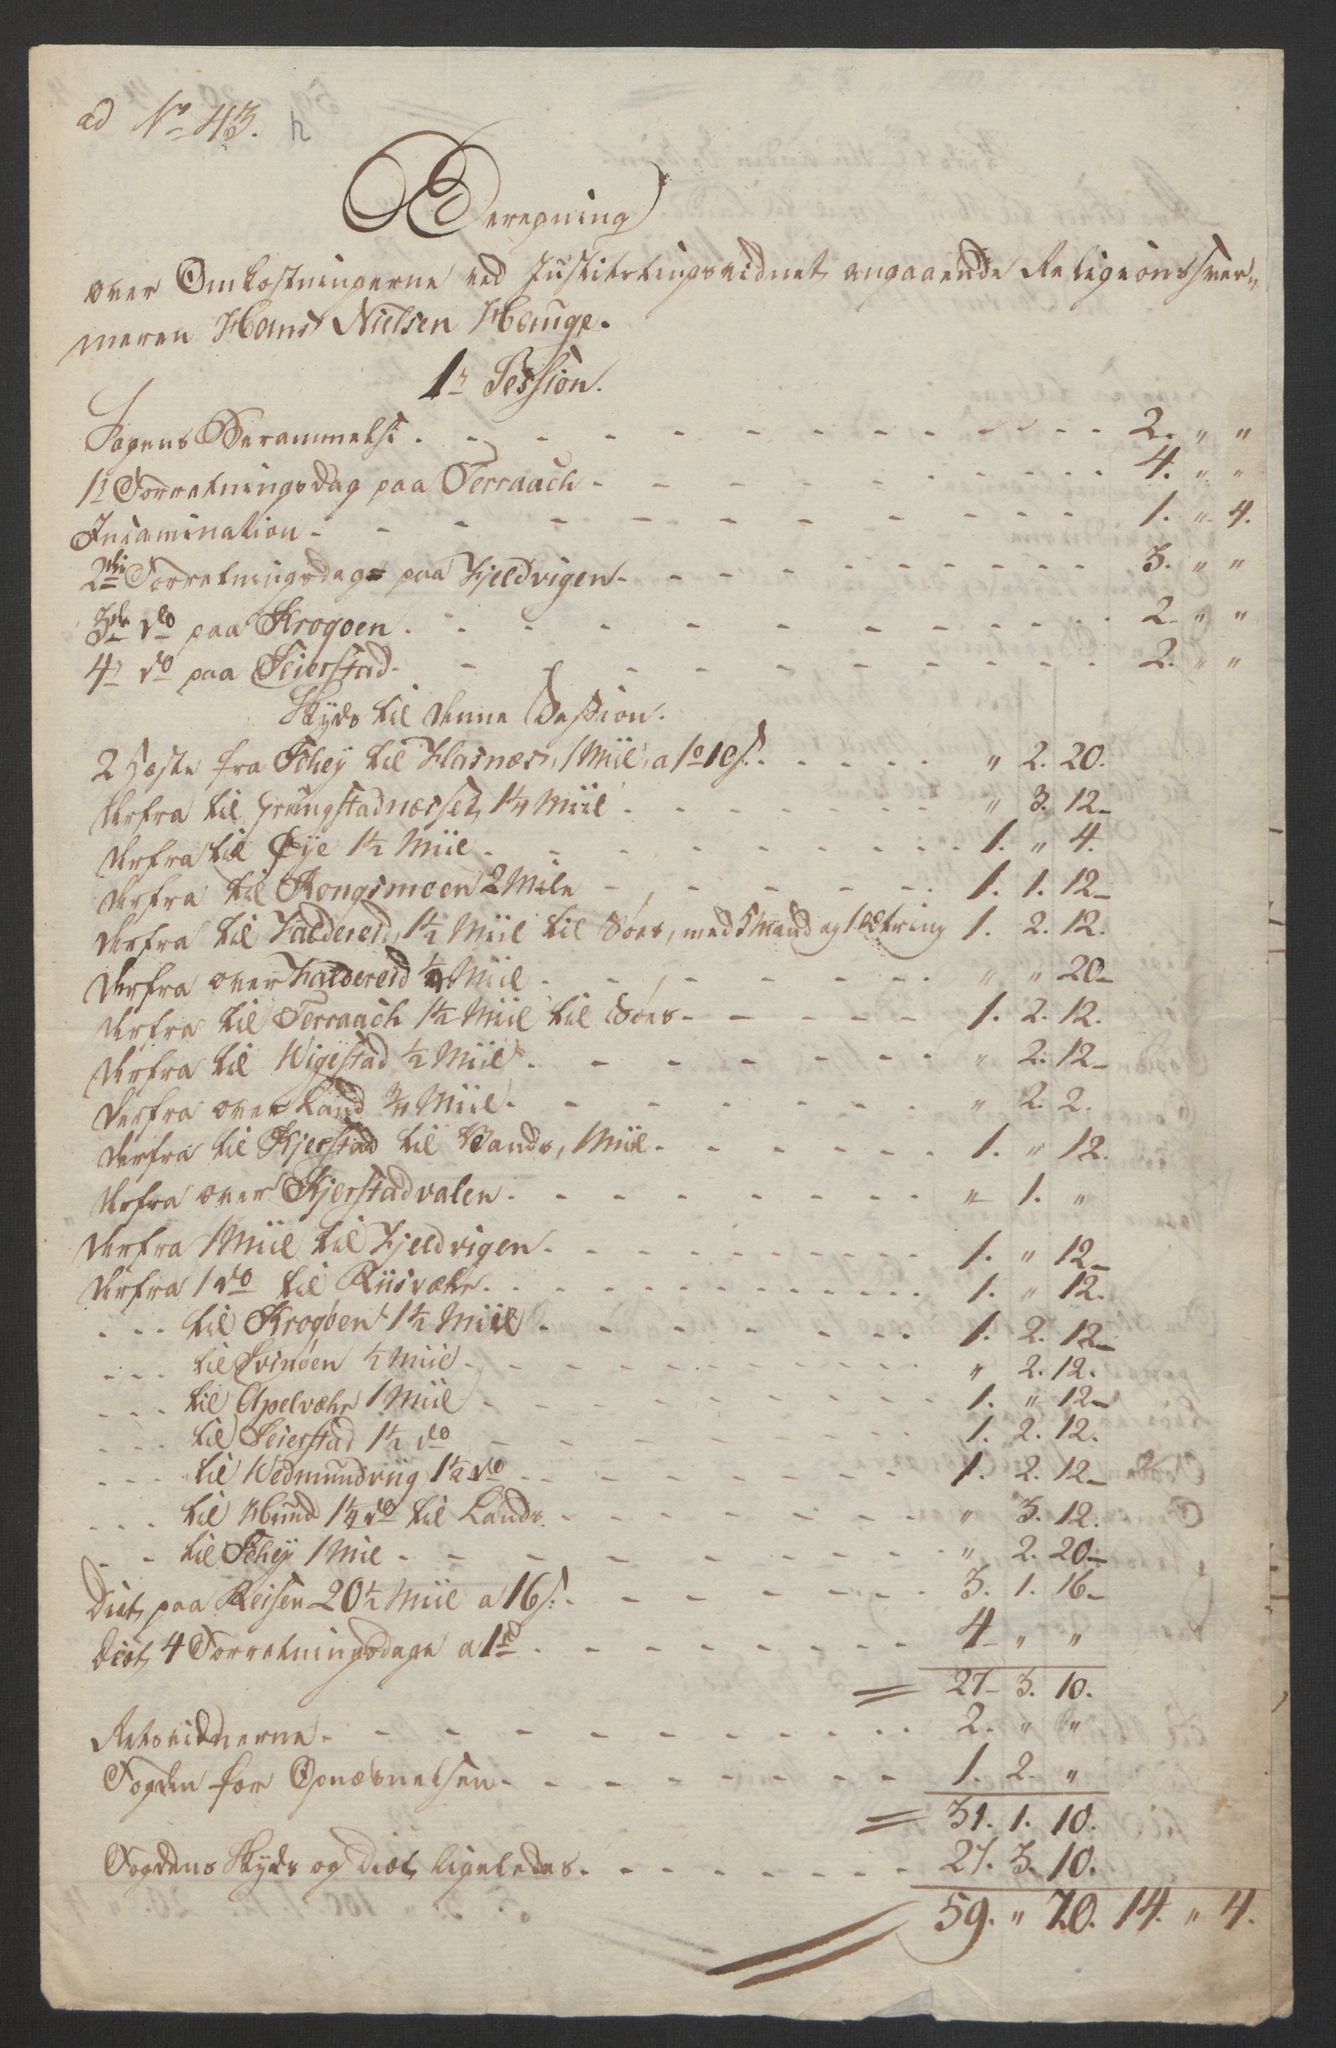 ad No 43. h
Beregning
over Omkostningerne ved Justitstingsvidnet angaaende Religionssver„
meren Hans Nielsen Hauge.
1r Session.
Sagens Berammelse . . . 2. „ „
1r Forretningsdag paa Terraach . . . 4. „ „
Incamination . . . 1. „ 4.
2den Forretningsdag paa Fjeldvigen . . . 3. „ „
3de do paa Krogøen . . . 2. „ „
4r do paa Seierstad . . . 2. „ „
Skyds til denne Session.
2 Heste fra Fohey til Hasnæs, 1 Miil, a 1o 10s. . . . „ 2. 20.
derfra til Grungstadnæsset 1¼ Miil . . . „ 3. 12
derfra til Øye 1½ Miil . . . 1. „ 4.
derfra til Kongsmoen 2 Mile . . . 1. 1. 12
derfra til Faldereid, 1½ Miil til Søes, med 3 Mand og 1 Fætring 1. 2. 12.
derfra over Faldereid ¼ Miil . . . „ „ 20
derfra til Terraach 1½ Miil til Søes . . . 1. 2. 12.
derfra til Wigestad ½ Miil . . . „ 2. 12
derfra over Land ¾ Miil . . . „ 2. 2.
derfra til Kjerstad til Vands, 1 Miil . . . 1. „ 12.
derfra over Kjerstadvalen . . . „ 1. „
derfra 1 Miil til Fjeldvigen . . . 1. „ 12
derfra 1 do til Riisvær . . . 1. „ 12.
. . . til Krogøen 1½ Miil . . . 1. 2. 12
. . . til Svinøen ½ Miil . . . „ 2. 12.
. . . til Apelvær 1 Miil . . . 1. „ 12
. . . til Seierstad 1½ do . . . 1. 2. 12.
. . . til Wedmundviig 1½ do . . . 1. 2. 12
. . . til Hund 1¼ do til Lands . . . „ 3. 12.
. . til Fohey 1 Mil . . . „ 2. 20
Diet paa Reisen 20½ Miil a 16s. . . . 3. 1. 16
Diet 4 Forretningsdage a 1rd . . . 4 „ „
27 3. 10.
Retsvidnerne . . . 2. „ „
Fogden for Opnævnelsen . . . 1. 2. „
31. 1. 10.
Fogdens Skyds og Diet ligeledes . . . 27. 3. 10.
59. „ 20. 14. „ 4.